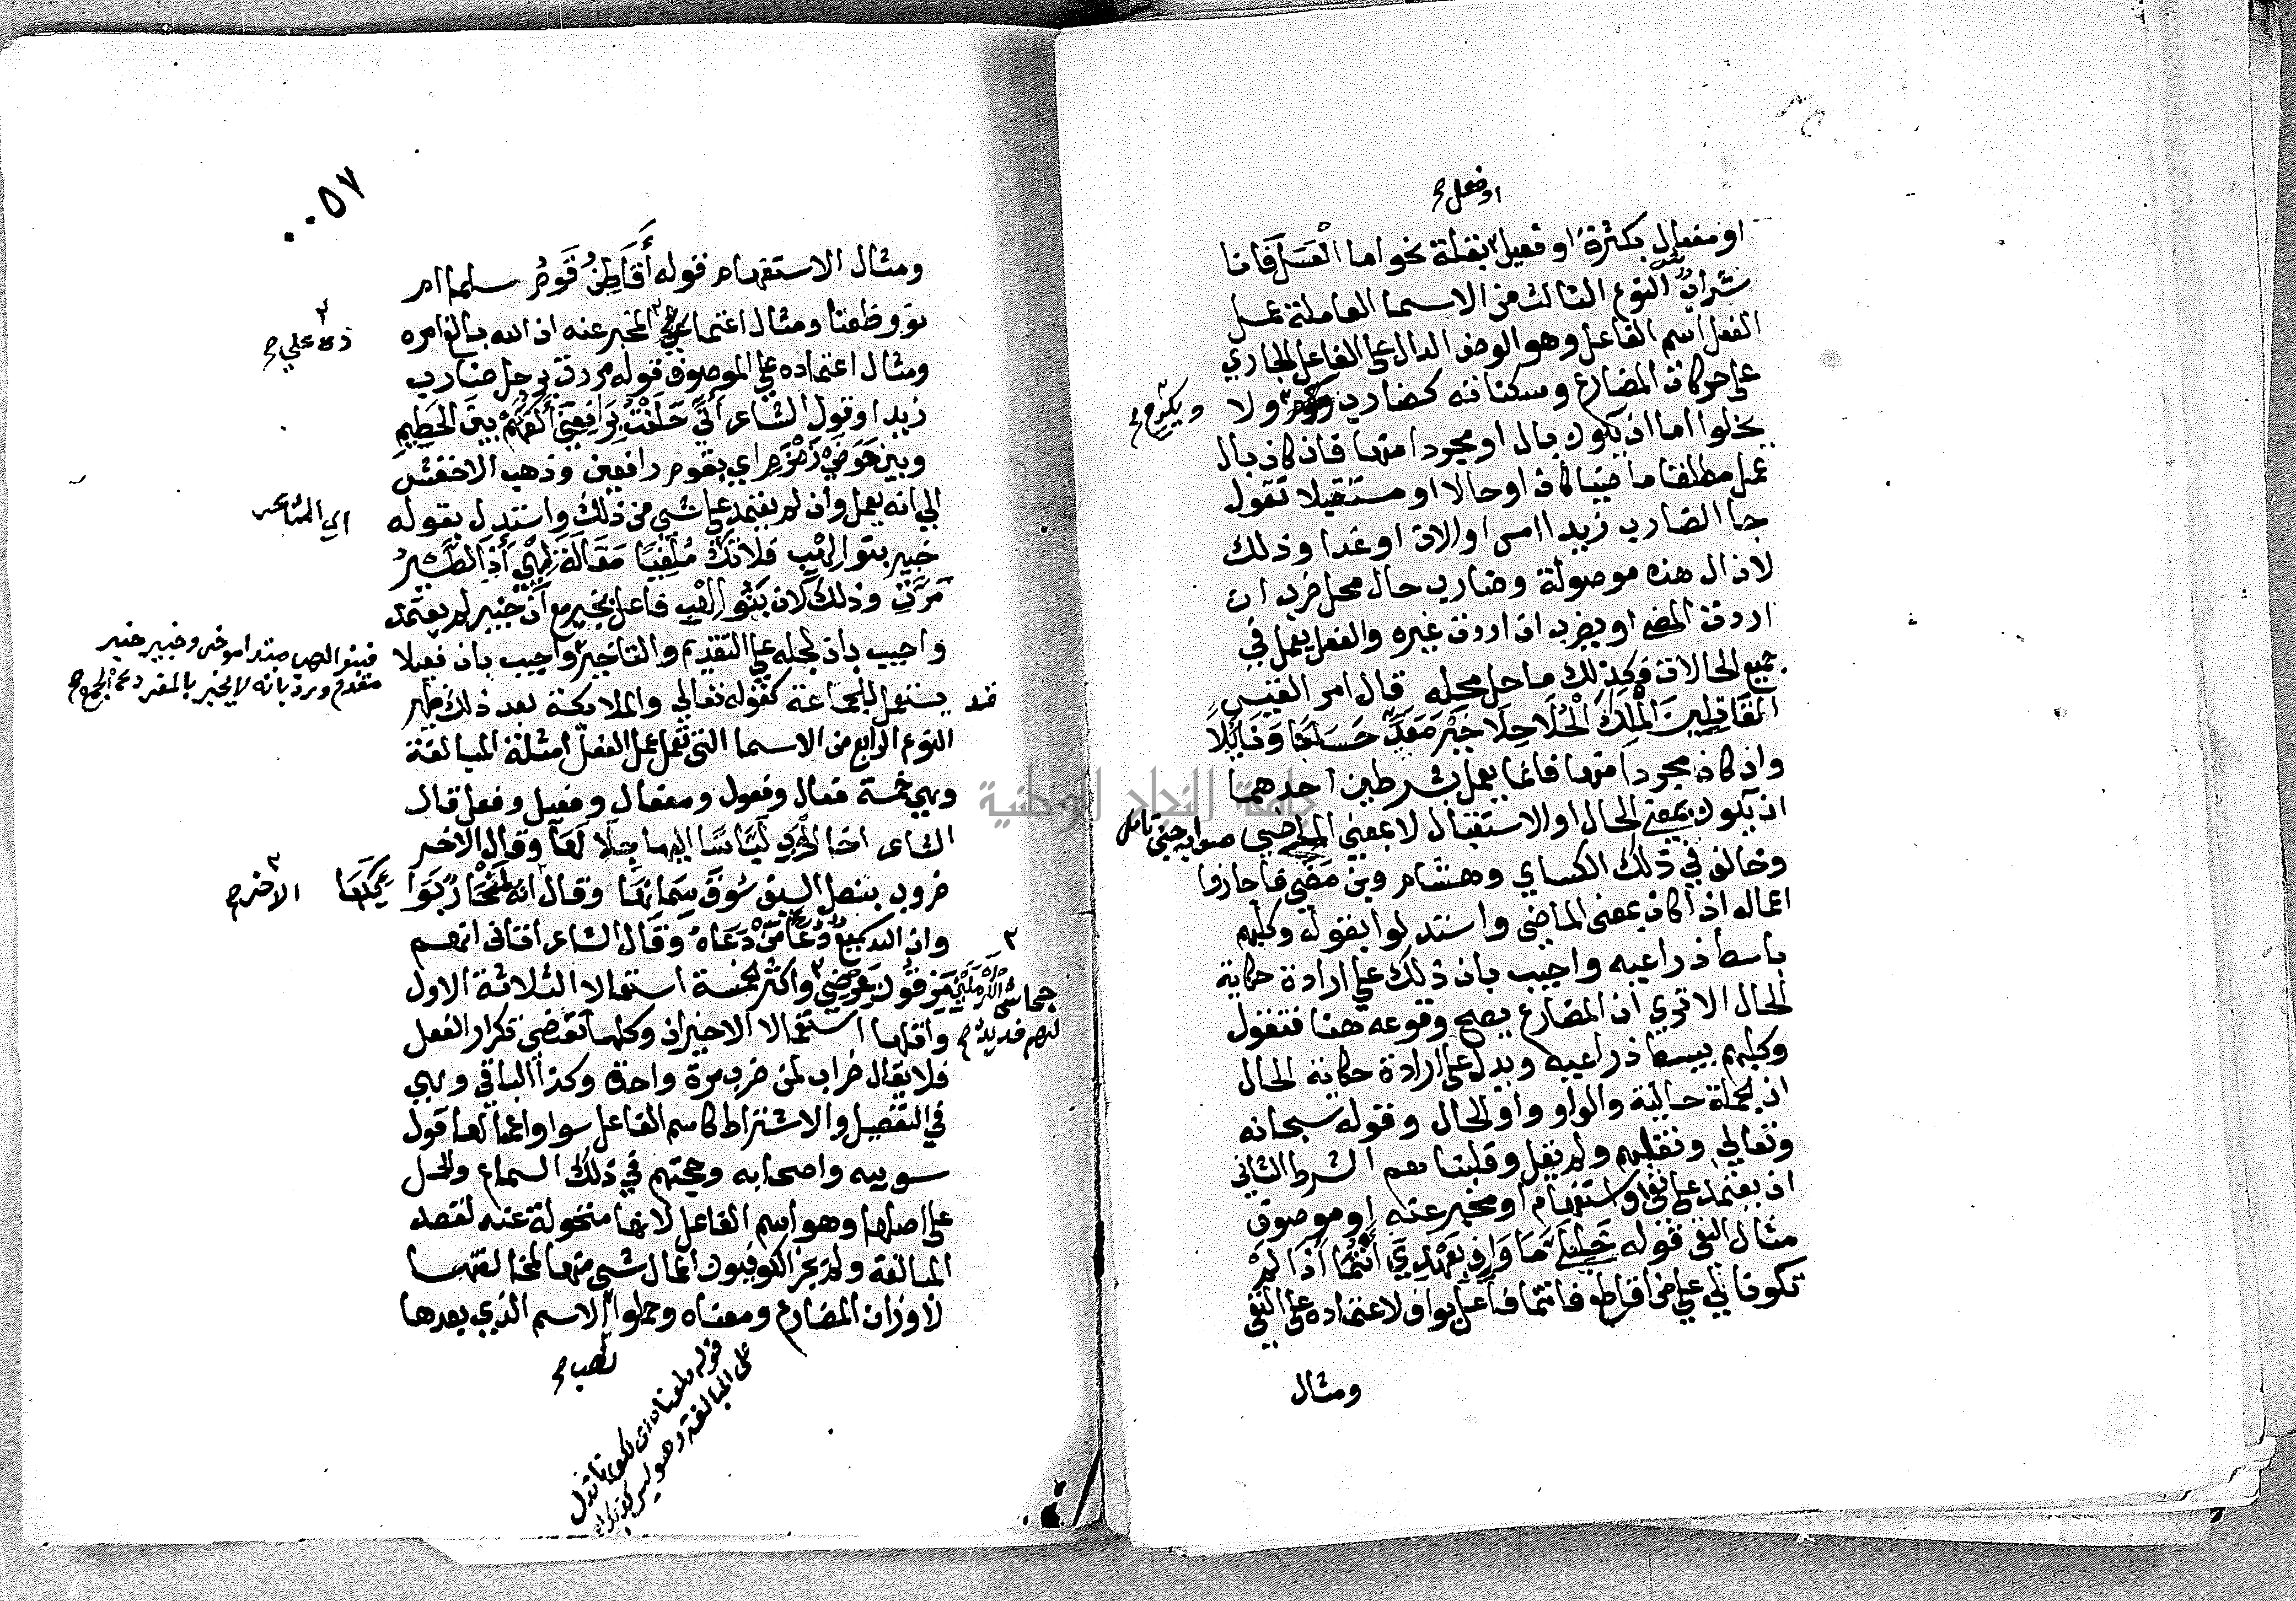 او فعل
او مفعال بكثرة او فعيل بقلة نحو اما العسل فانا
شراب النوع الثالث من الاسما العاملة عمل
الفعل اسم الفاعل وهو الوصف الدال على الفاعل الجاري
على حركات المضارع وسكناته كضارب ولا
ويكرم
يخلوا اما ان يكون بال او مجردا منها فان كان بال
عمل مطلقا ماضيا كان او حالا او مستقبلا تقول
جا الضارب زيدا امس او الان او غدا وذلك
لان ال هذه موصولة وضارب حال محل ضرب ان
اردت المضي او يضرب ان اردت غيره والفعل يعمل في
جميع الحالات فكذلك ما حل محله قال امر القيس
القاتلين الملك الحلاحلا خير معد حسبا ونائلا
وان كان مجردا منها فانما يعمل بشرطين احدهما
ان يكون بمعنى الحال او الاستقبال لا بمعنى الماضي
وخالف في ذلك الكساي وهشام وبن مضي فاجازوا
اعماله اذا كان بمعنى الماضي واستدلوا بقوله وكلبهم
باسط ذراعيه واجيب بان ذلك على ارادة حكاية
الحال الا تري ان المضارع يصح وقوعه هنا فتقول
وكلبهم يبسط ذراعيه ويدل على ارادة حكاية الحال
ان الجملة حالية والواو واو الحال وقوله سبحانه
وتعالى ونقلبهم ولم يقل وقلبناهم الشرط الثاني
ان يعتمد على نفي او استفهام او مخبر عنه او موصوف
مثال النفي قوله خليلي ما واف بعهدي انتما اذا لم
تكونا لي على من اقاطع فانتما فاعل بواف لاعتماده على النفي
ومثال
٠٠٥٧
ومثال الاستفهام قوله أقاطن قوم سلما ام
نووا ظعنا ومثال اعتما على المخبر عنه ان الله بالغ امره
ده على
ومثال اعتماده على الموصوف قوله مررت برجل ضارب
زيدا وقول الشاعر اني حلفت برافعين أكفهم بين الحطيم
وبين حوضي زمزم اي بقوم رافعين وذهب الاخفش
الي انه يعمل وان لم يعتمد على شي من ذلك واستدل بقوله
اي الشاعر
خبير بنو لهب فلا تك ملغيا مقالة لهبي إذا الطير
مرت وذلك لان بنو لهب فاعل بخبير مع ان خبير لم يعتمد
واجيب بان نحمله على التقديم والتاخير واجيب بان فعيلا
فبنو الهب مبتدا موخر وخبير خبر
مقدم ورد بانه لا يخبر بالمفرد عن الجمع
يستعمل للجماعة كقوله تعالي والملايكة بعد ذلك ظهير
النوع الرابع من الاسما التي تعمل عمل الفعل امثلة المبالغة
وهي خمسة فعال وفعول ومفعال وفعيل وفعل قال
الشاعر اخا الحرب لباسا اليها جلالها وقال الاخر
ضروب بنصل السيف سوق سمانها وقال انه لمنحار بوا
الاخر
وان الله سميع دعا من دعاه وقال الشاعر اتاني انهم
مزقون عرضي واكثر الخمسة استعمالا الثلاثة الاول
جحاش الكرملين
لهم فديد
واقلها استعمالا الاخيران وكلها تقتضي تكرار الفعل
فلا يقال ضراب لمن ضرب مرة واحدة وكذا الباقي وهي
في التفصيل والاشتراط كاسم الفاعل سوا واعمالها قول
سيبويه واصحابه وحجتهم في ذلك السماع والحمل
على اصلها وهو اسم الفاعل لانها متحولة عنه لقصد
المبالغة ولم يجز الكوفيون اعمال شي منها لمخالفتها
لاوزان المضارع ومعناه وحملوا الاسم الذي بعدها
نصب
على المبالغة وهو ليس كذلك
جامعة النجاح الوطنية